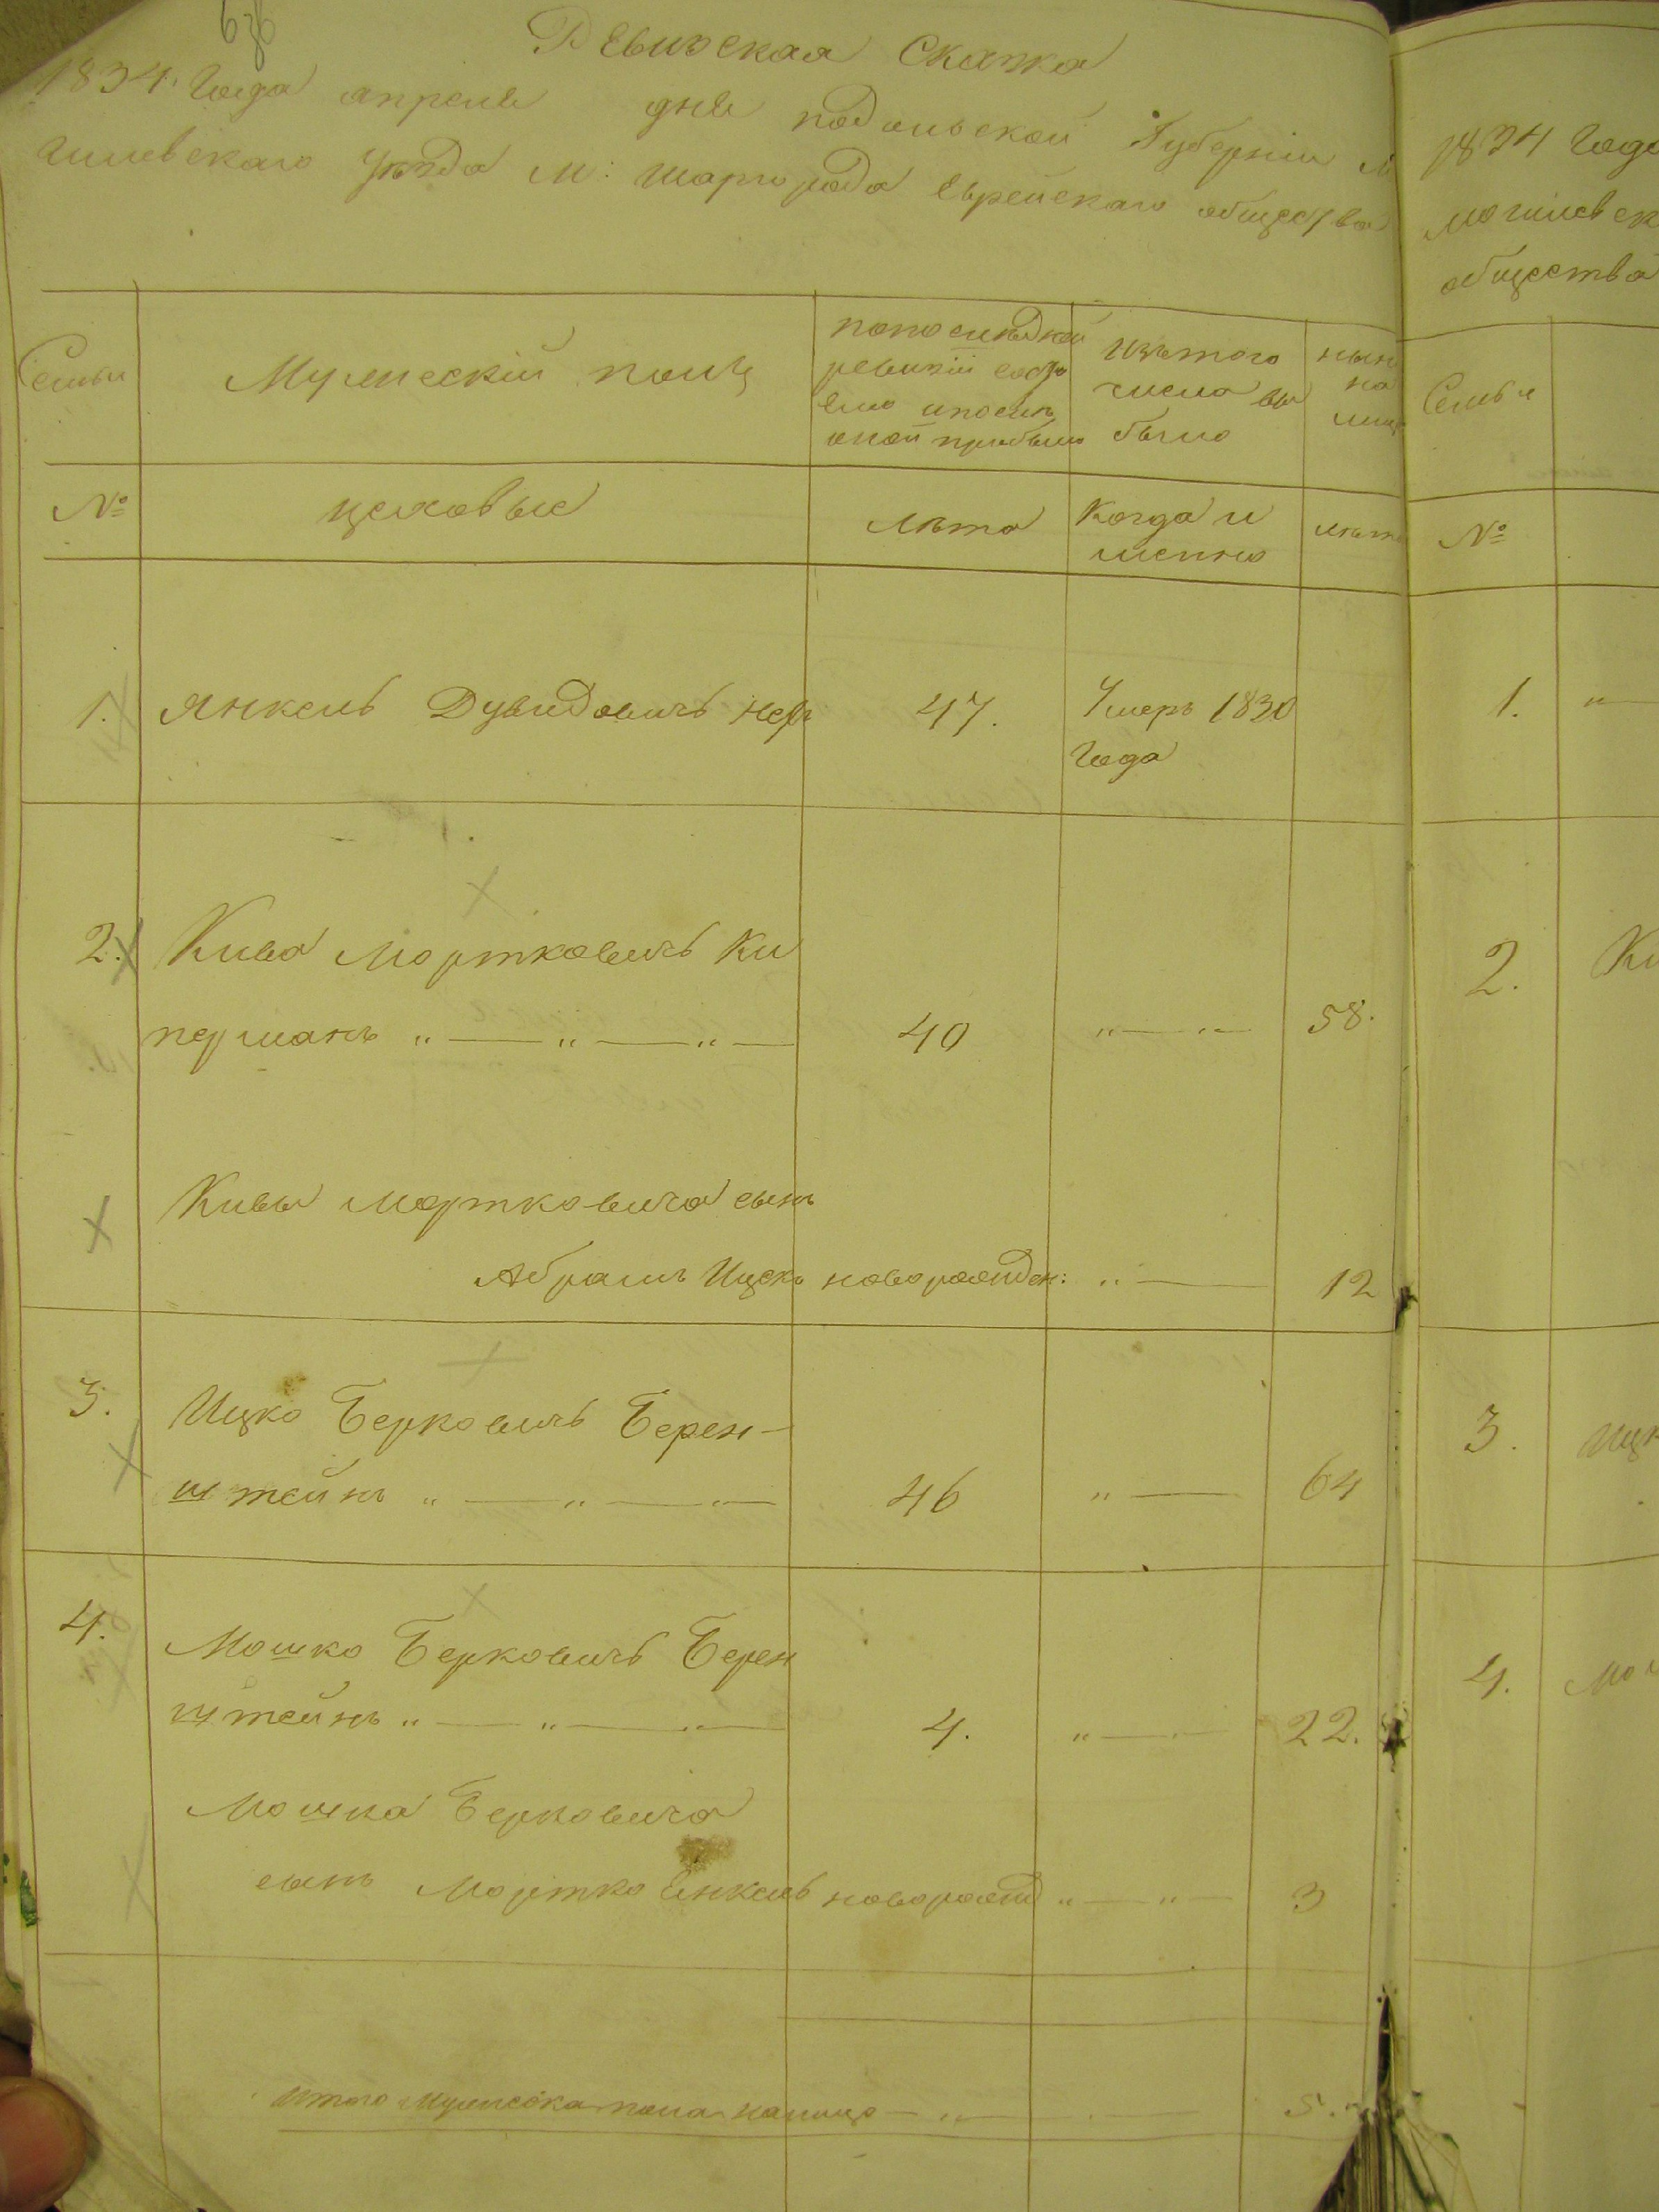 Ревизская Сказка
1834. Года апреля дня подольской Губернии М
гилевскаго уѣзда м: шаргорода Еврейскаго общества
Семьи
Мужескій полъ
попоследней
ревизіи состо
яло ипосля
оной прибыло
Изътого
числа вы
было
нын
на
лиц
№
цеховые
лѣта
Когда и
менно
лѣта
1.
Янкель Дувидовичъ
47.
Умеръ 1830
Года
2.
Кива Мортковичъ Ки
перманъ " — " — " —
40
" — " —
58.
Кивы Мортковича сынъ
Абрамъ Ицекъ новорожден: " —
12
3.
Ицко Берковичъ Берен-
штейнъ " — " — " —
46
" —
64
4.
Мошко Берковичъ Берен
штейнъ " — " — " —
4.
" —
22.
Мошка Берковича
сынъ Мортко Янкель новорожд " — " —
3
итого мужеска пола налицо — " —
5.
1834 Года
могилевск
общества
Семья
№
1. "
2. Ки
3. Ицк
4. Мош